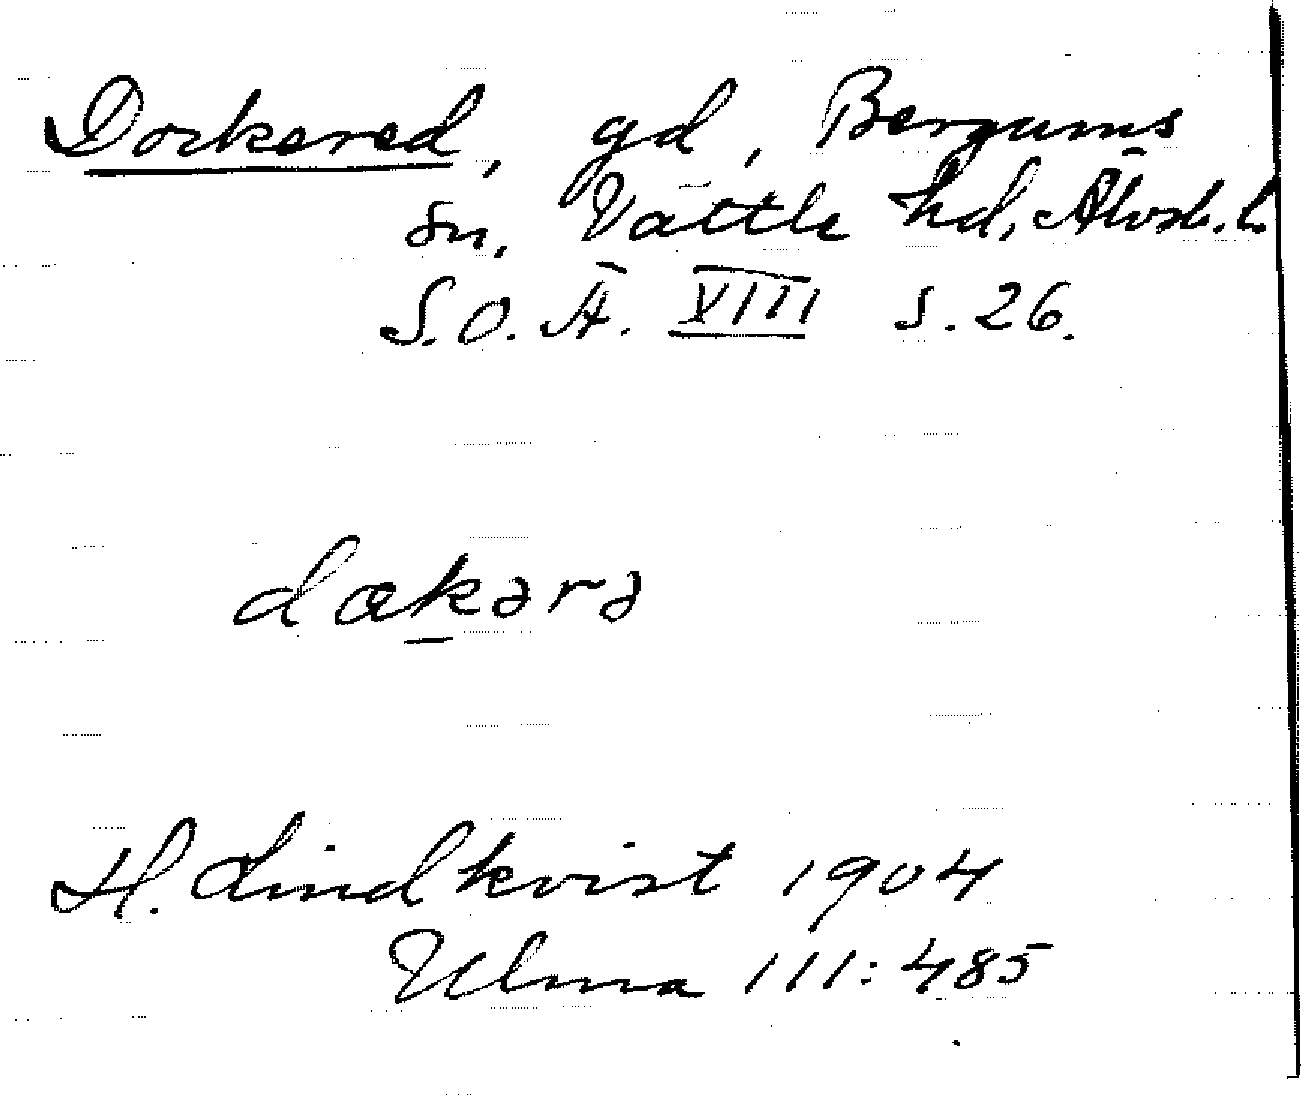 Dockered, gd, Bergums
sn, Vättle hd, Älvsb. l.
S.O.Ä. VIII s. 26.
dœkərə
H. Lindkvist 1904
Ulma 111:485